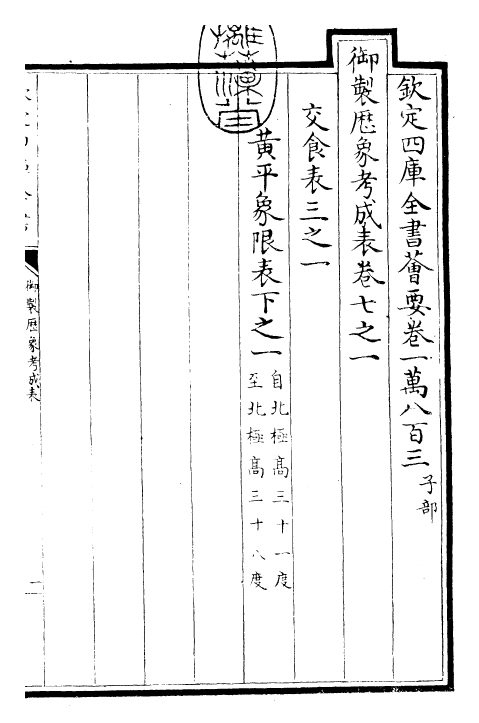 欽定四庫全書薈要卷一萬八百三 子部
御製歷象考成表卷七之一
交食表三之一
黃平象限表下之一 自北極高三十一度
至北極高三十八度
御製歷象考成表